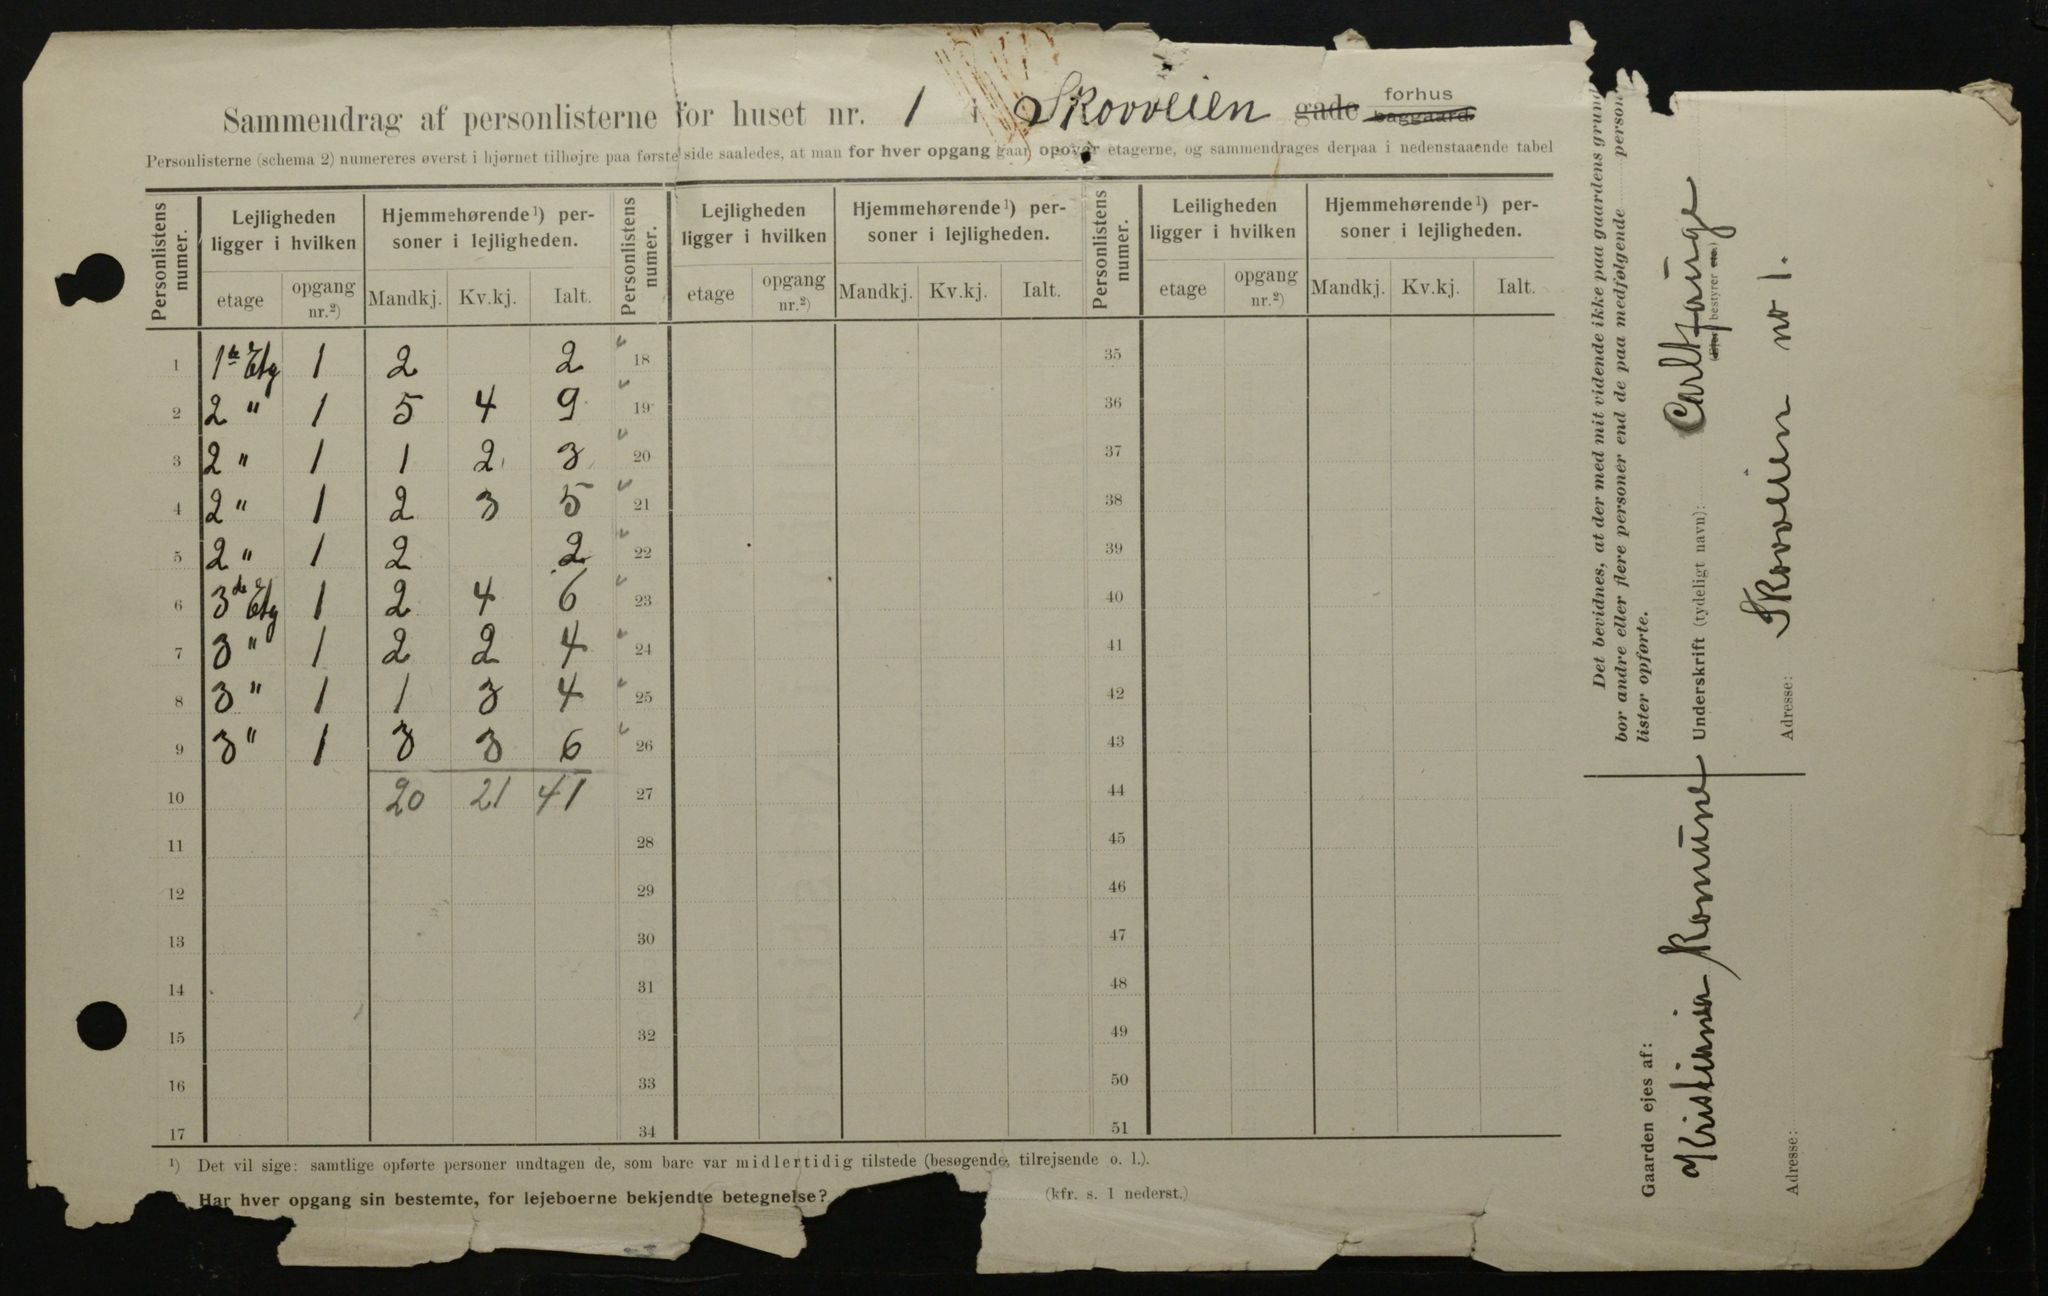 Sammendrag af personlisterne for huset nr. 1 i Skovveien gade forhus baggaard
Personlisterne (schema 2) numereres øverst i hjørnet tilhøjre paa første side saaledes, at man for hver opgang gaar opover etagerne, og sammendrages derpaa i nedenstaaende tabel
Personlistens numer. Lejligheden ligger i hvilken Hjemmehørende ¹) personer i lejligheden. Personlistens numer. Lejligheden ligger i hvilken Hjemmehørende ¹) personer i lejligheden. Personlistens numer. Leiligheden ligger i hvilken Hjemmehørende ¹) personer i lejligheden.
etage opgang nr.²) Mandkj. Kv.kj. Ialt. etage opgang nr.²) Mandkj. Kv.kj. Ialt. etage opgang nr.²) Mandkj. Kv.kj. Ialt.
1 1ste Etg 1 2 2 18 35
2 2 " 1 5 4 9 19 36
3 2 " 1 1 2 3 20 37
4 2 " 1 2 3 5 21 38
5 2 " 1 2 2 22 39
6 3de Etg 1 2 4 6 23 40
7 3 " 1 2 2 4 24 41
8 3 " 1 1 3 4 25 42
9 3 " 1 3 3 6 26 43
10 20 21 41 27 44
11 28 45
12 29 46
13 30 47
14 31 48
15 32 49
16 33 50
17 34 51
¹) Det vil sige: samtlige opførte personer undtagen de, som bare var midlertidig tilstede (besøgende, tilrejsende o. l.).
Har hver opgang sin bestemte, for lejeboerne bekjendte betegnelse? (kfr. s. 1 nederst.)
Det bevidnes, at der med mit vidende ikke paa gaardens grund
bor andre eller flere personer end de paa medfølgende person
lister opførte.
Underskrift (tydeligt navn): Carl
(Ejer bestyrer etc.)
Adresse: Skovveien no 1.
Gaarden ejes af:
Kristiania Komune
Adresse: